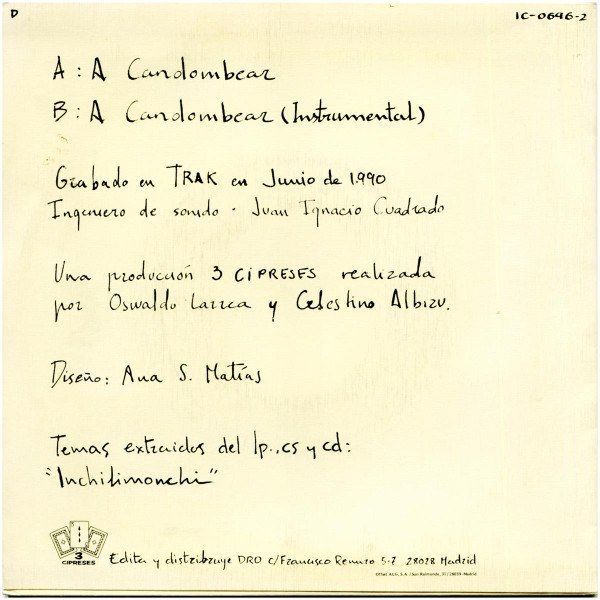 D
1C-0646-2
A : A Candombear
B : A Candombear (Instrumental)
Grabado en TRAK en Junio de 1.990
Ingeniero de sonido - Juan Ignacio Cuadrado
Una producción 3 CIPRESES realizada
por Oswaldo Larrea y Celestino Albizu.
Diseño: Ana S. Matías
Temas extraidos del lp., cs y cd:
"Inchilimonchi"
3
CIPRESES
Edita y distribuye DRO c/Francisco Remiro 5-7 28028 Madrid
Offset ALG, S.A. / San Raimundo, 31 / 28039-Madrid